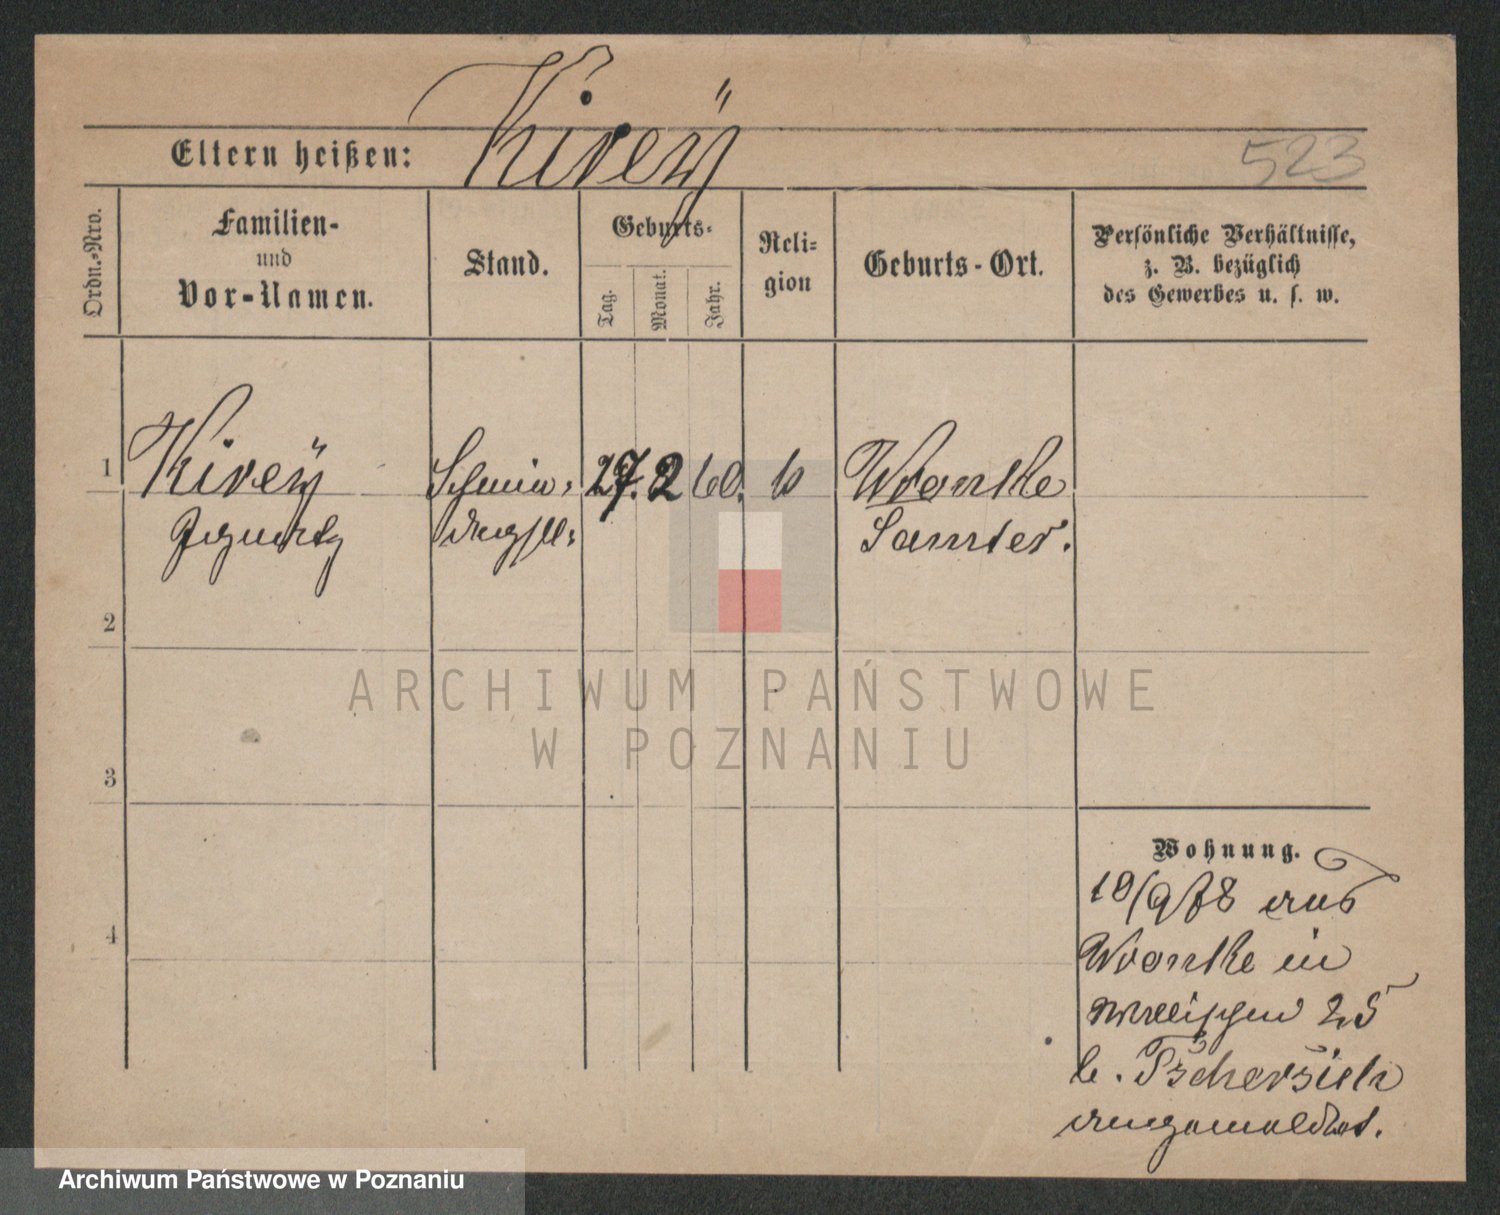 Kirey
Eltern heißen:
523
Ordn.-Nro.
Familien-
und
Vor-Namen.
Stand.
Geburts-
Tag.
Monat.
Jahr.
Reli-
gion
Geburts-Ort.
Persönliche Verhältnisse,
z. B. bezüglich
des Gewerbes u. s. w.
1
Kirey
27. 2 60.
k
Wronke
Ignatz
Samter.
2
3
4
ARCHIWUM PAŃSTWOWE
W POZNANIU
Wohnung.
10/9 78 aus
Wronke in
Wallischei 25
b. Tschersich
angemeldet.
Archiwum Państwowe w Poznaniu